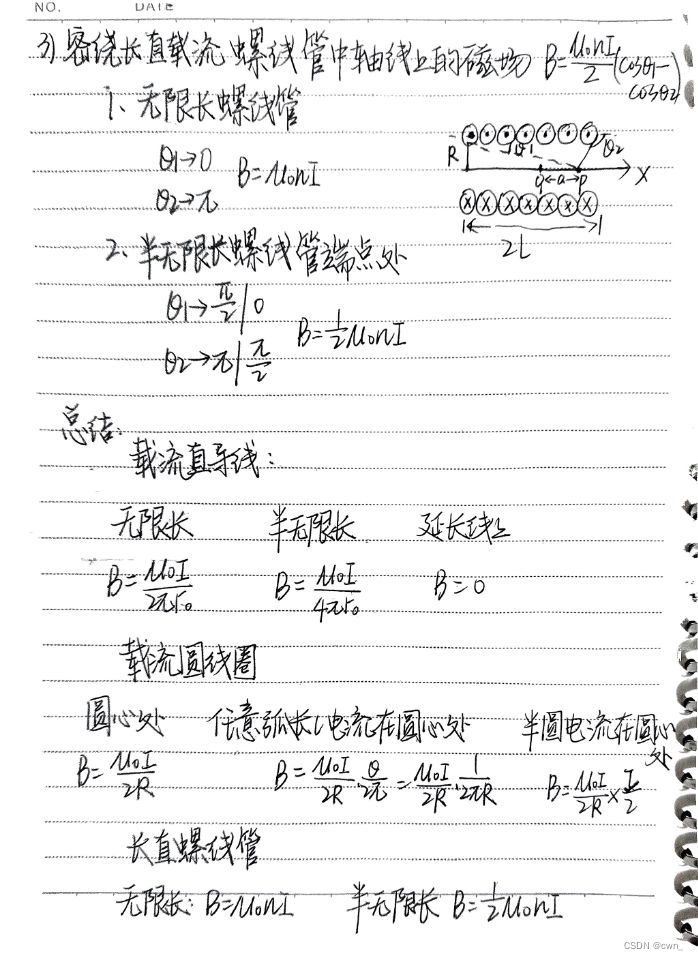 NO. DATE
3) 密绕长直载流螺线管中轴线上的磁场 B=μ₀nI/2 (cosθ₁-cosθ₂)
1、无限长螺线管
θ₁→0
B=μ₀nI
θ₂→π
R θ₁ θ₂
a P X
2L
2、半无限长螺线管端点处
θ₁→π/2 | 0
B=1/2 μ₀nI
θ₂→π | π/2
总结:
载流直导线:
无限长 半无限长 延长线上
B=μ₀I/2πr₀ B=μ₀I/4πr₀ B=0
载流圆线圈
圆心处 任意弧长l电流在圆心处 半圆电流在圆心处
B=μ₀I/2R B=μ₀I/2R·θ/2π=μ₀I/2R·l/2πR B=μ₀I/2R×
长直螺线管
无限长: B=μ₀nI 半无限长 B=1/2 μ₀nI
CSDN @cwn_